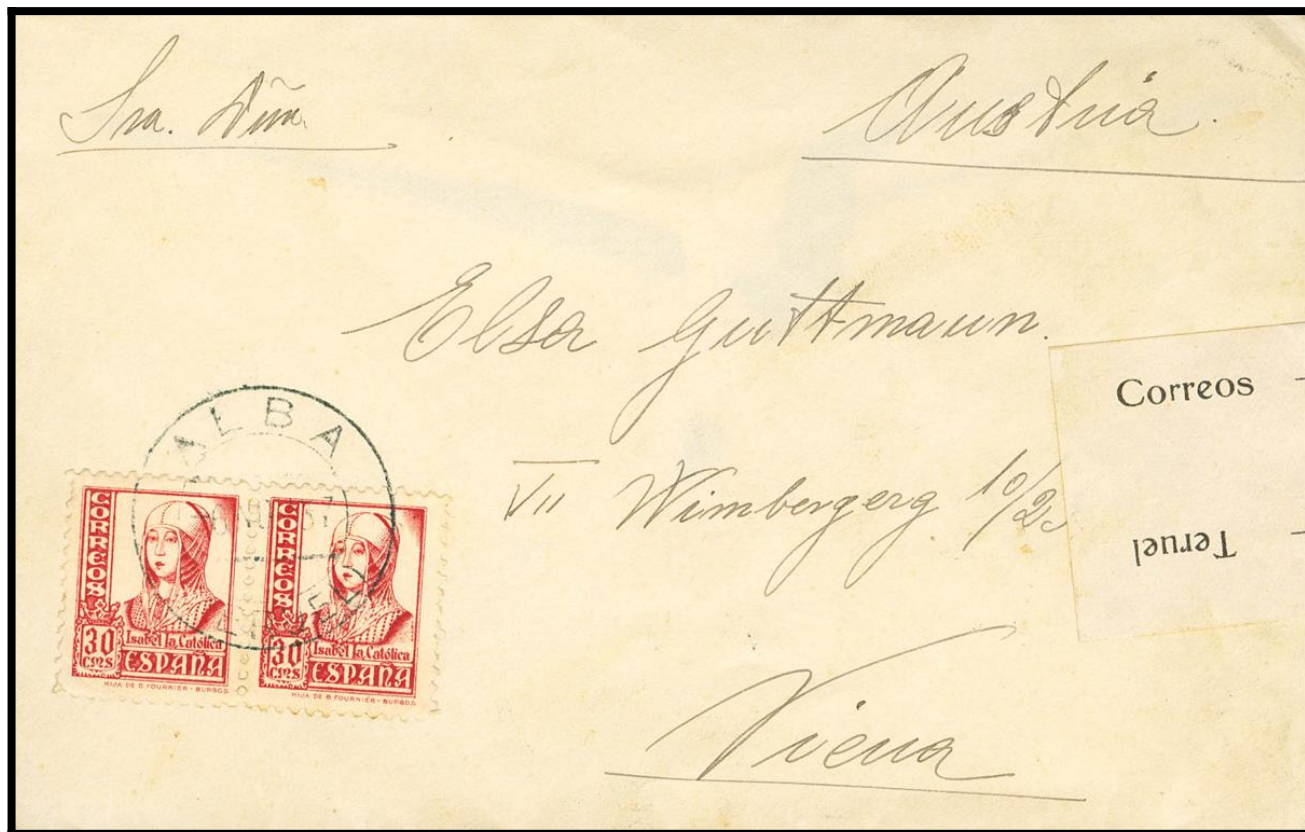 Sra. Dña.
Austria.
Elsa Guttmann.
VII Wimbergerg. 10/2
Viena
Correos
Teruel
ALBA
CORREOS
30 CMS
Isabel la Católica
ESPAÑA
HIJA DE B. FOURNIER - BURGOS
CORREOS
30 CMS
Isabel la Católica
ESPAÑA
HIJA DE B. FOURNIER - BURGOS